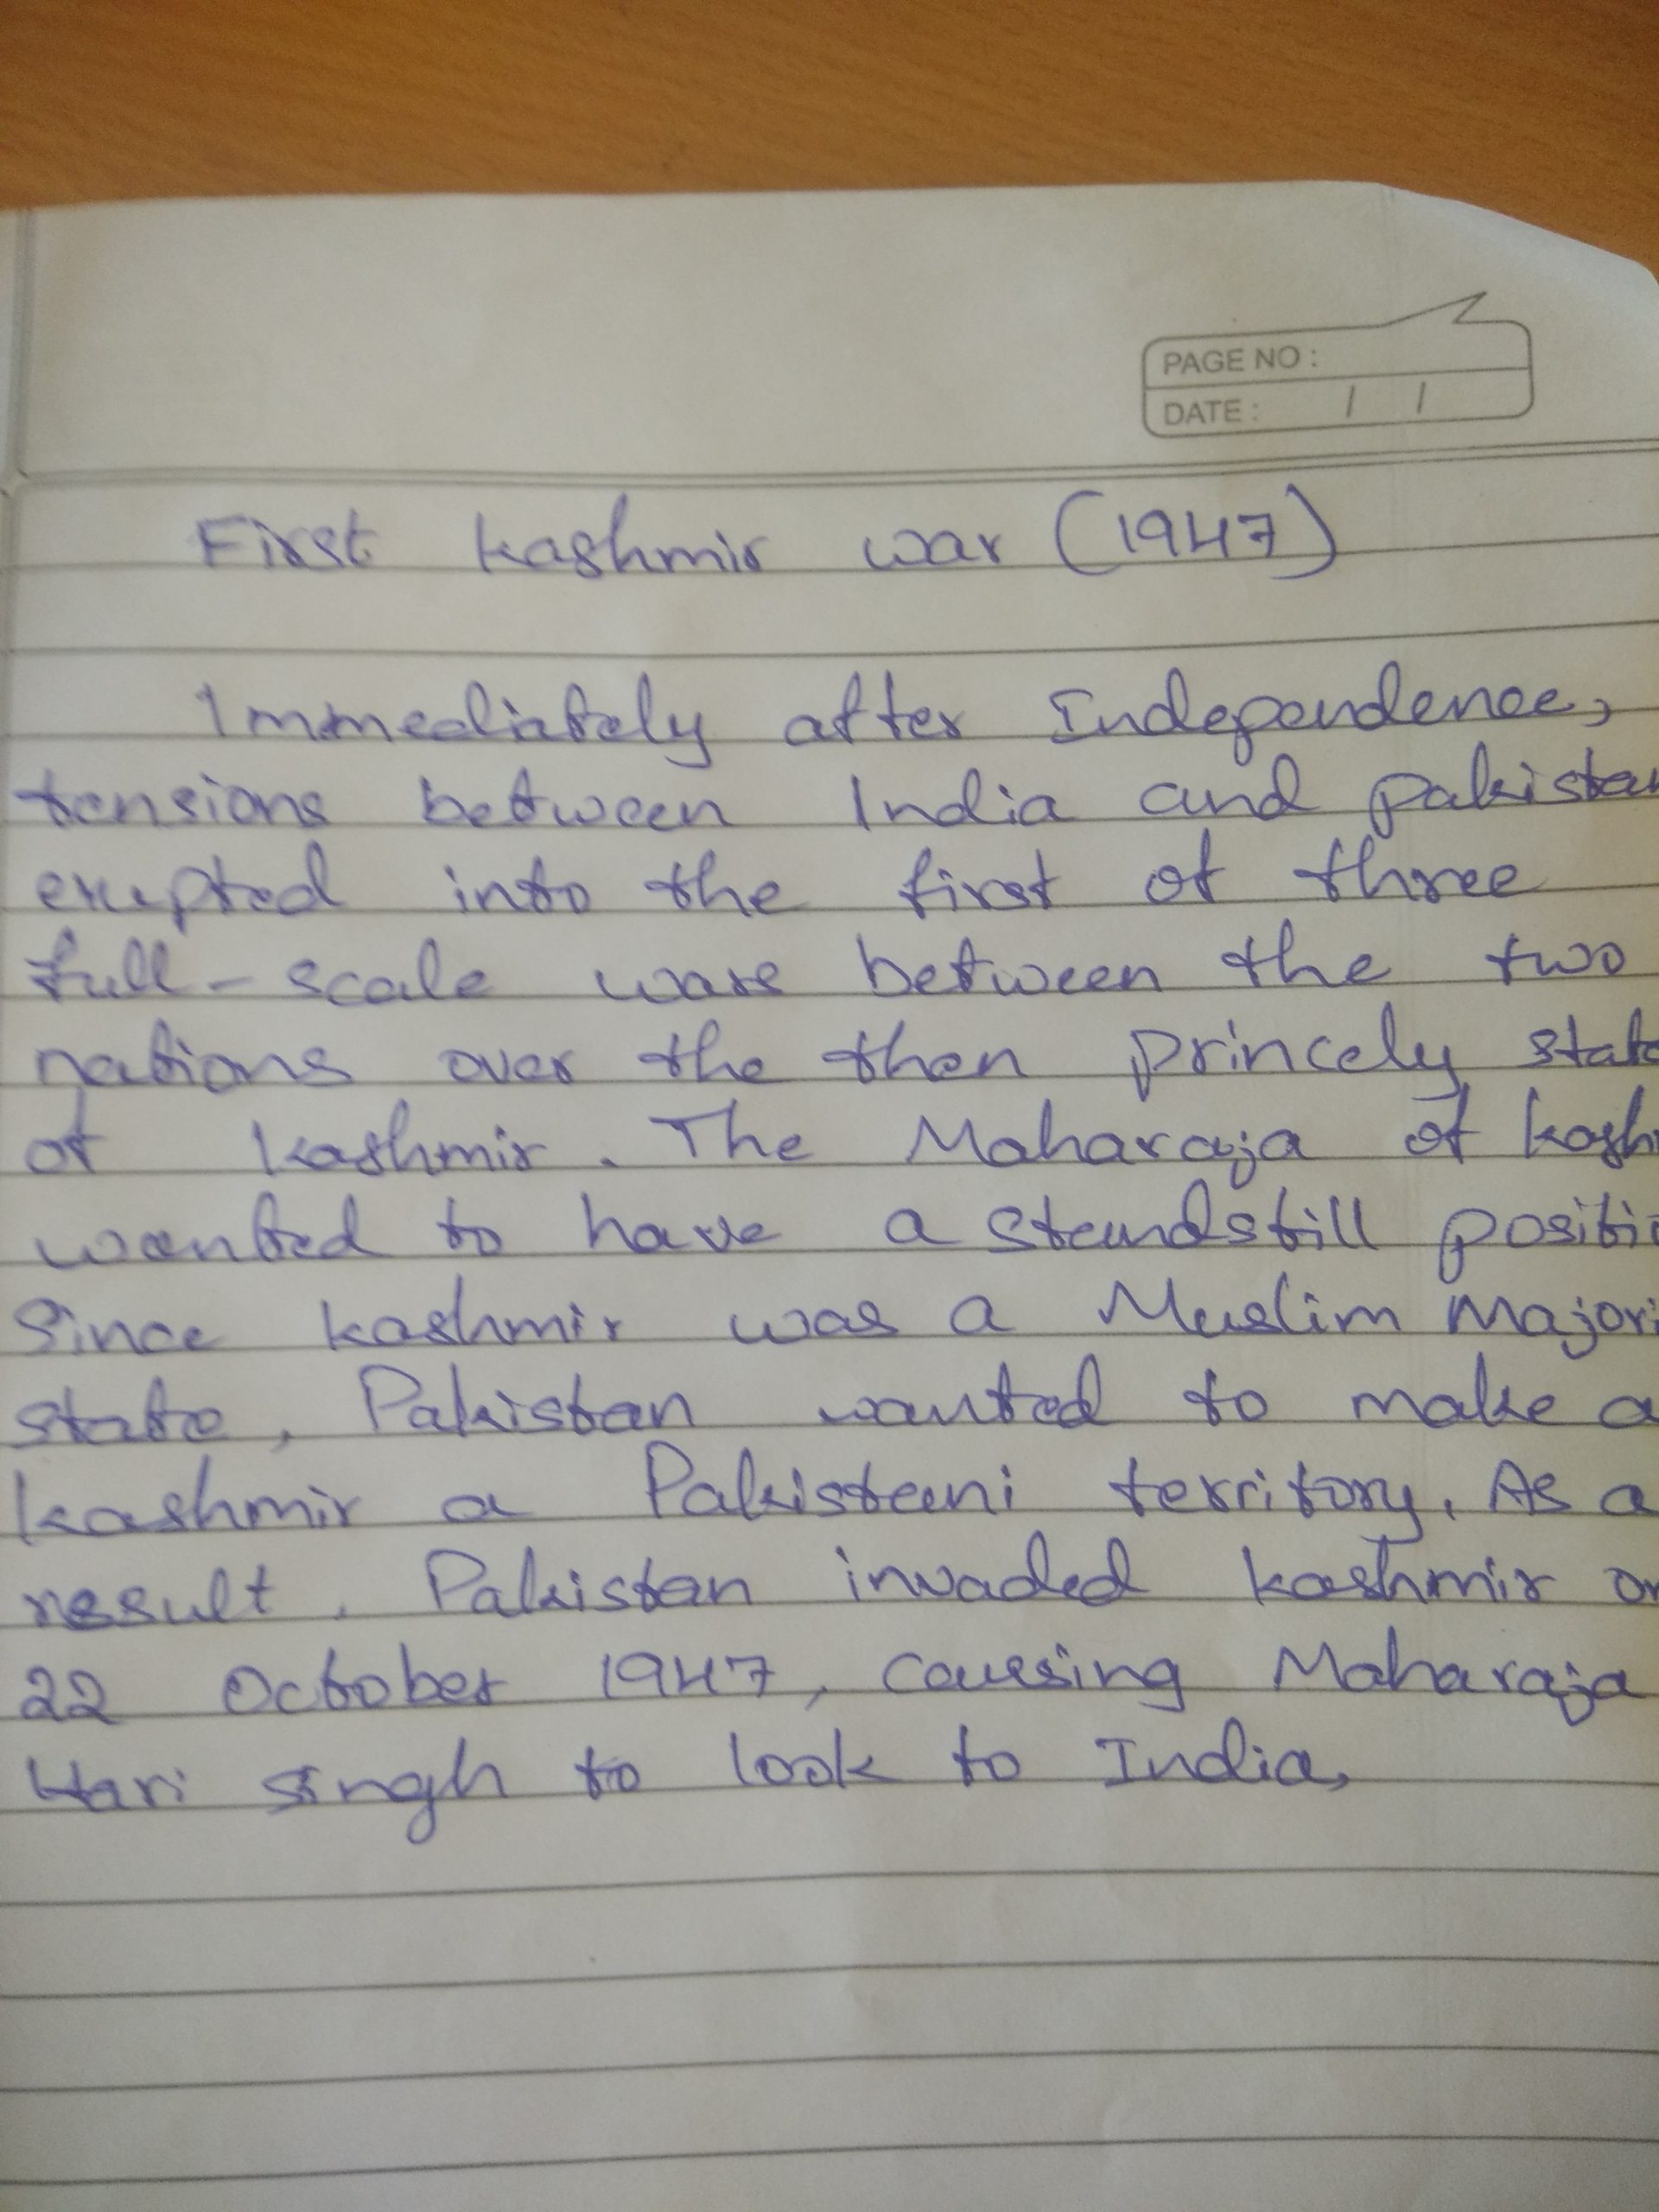 PAGE NO :
DATE : / /
First kashmir war (1947)
Immediately after Independence,
tensions between India and pakistan
erupted into the first of three
full-scale wars between the two
nations over the then princely state
of kashmir. The Maharaja of kosh
wanted to have a standstill positi
Since kashmir was a Muslim Majori
state, Pakistan wanted to make a
kashmir a Pakistani territory. As a
result. Pakistan invaded kashmir on
22 October 1947, causing Maharaja
Hari singh to look to India,